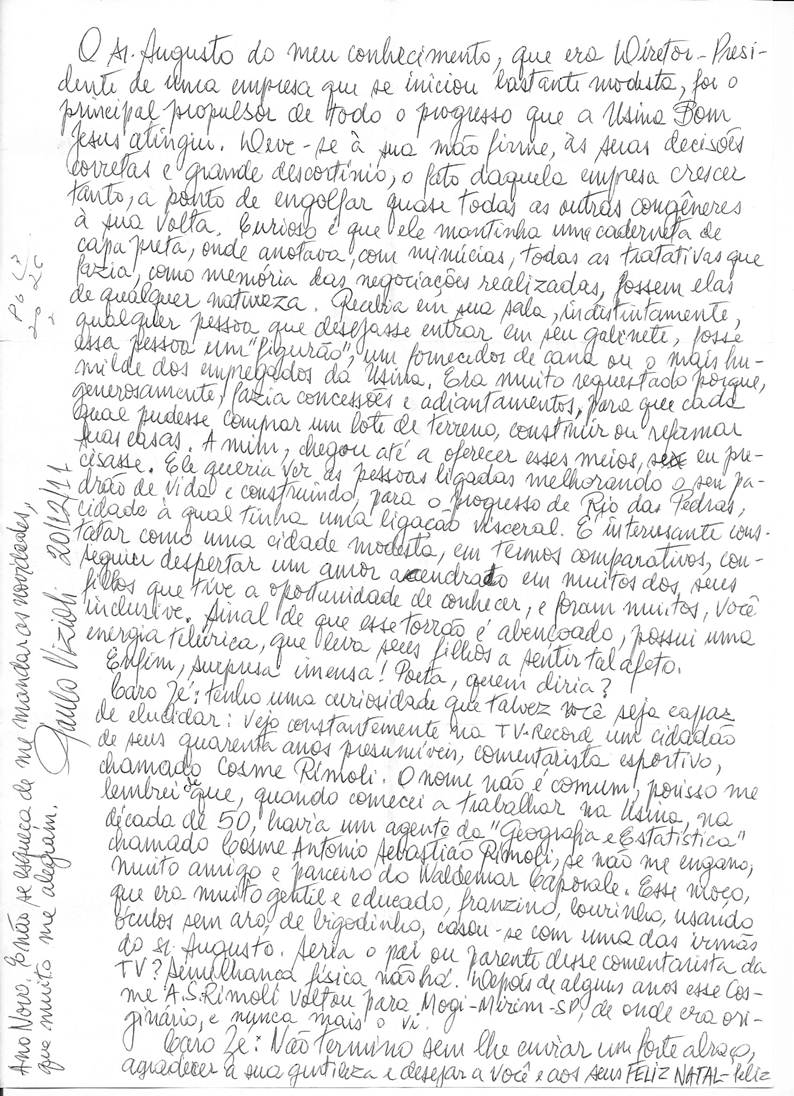 O sr. Augusto do meu conhecimento, que era Diretor-Presi-
dente de uma empresa que se iniciou bastante modesta, foi o
principal propulsor de todo o progresso que a Usina Bom
Jesus atingiu. Deve-se à sua mão firme, às suas decisões
corretas e grande descortínio, o fato daquela empresa crescer
tanto, a ponto de engolfar quase todas as outras congêneres
à sua volta. Curioso é que ele mantinha uma caderneta de
capa preta, onde anotava, com minúcias, todas as tratativas que
fazia, como memória das negociações realizadas, fossem elas
de qualquer natureza. Recebia em sua sala, indistintamente,
qualquer pessoa que desejasse entrar em seu gabinete, fosse
essa pessoa um "figurão", um fornecedor de cana ou o mais hu-
milde dos empregados da Usina. Era muito requestado porque,
generosamente, fazia concessões e adiantamentos, para que cada
qual pudesse comprar um lote de terreno, construir ou reformar
suas casas. A mim, chegou até a oferecer esses meios, se eu pre-
cisasse. Ele queria ver as pessoas ligadas melhorando o seu pa-
drão de vida e construindo, para o progresso de Rio das Pedras,
cidade à qual tinha uma ligação visceral. É interessante cons-
tatar como uma cidade modesta, em termos comparativos, con-
seguiu despertar um amor acendrado em muitos dos seus
filhos que tive a oportunidade de conhecer, e foram muitos, você
inclusive. Sinal de que esse torrão é abençoado, possui uma
energia telúrica, que leva seus filhos a sentir tal afeto.
Enfim, surpresa imensa! Poeta, quem diria?
Caro Zé: tenho uma curiosidade que talvez você seja capaz
de elucidar: vejo constantemente na TV-Record um cidadão
de seus quarenta anos presumíveis, comentarista esportivo,
chamado Cosme Rímoli. O nome não é comum, porisso me
lembrei de que, quando comecei a trabalhar na Usina, na
década de 50, havia um agente da "Geografia e Estatística"
chamado Cosme Antonio Sebastião Rímoli, se não me engano,
muito amigo e parceiro do Waldemar Caporale. Esse moço,
que era muito gentil e educado, franzino, lourinho, usando
óculos sem aro, de bigodinho, casou-se com uma das irmãs
do sr. Augusto. Seria o pai ou parente desse comentarista da
TV? Semelhança física não há. Depois de alguns anos esse Cos-
me A.S. Rímoli voltou para Mogi-Mirim-SP, de onde era ori-
ginário, e nunca mais o vi.
Caro Zé: Não termino sem lhe enviar um forte abraço,
agradecer a sua gentileza e desejar a você e aos seus FELIZ NATAL - Feliz
Ano Novo. E não se esqueça de me mandar as novidades,
que muito me alegram.
Paulo Vizioli 20/12/11